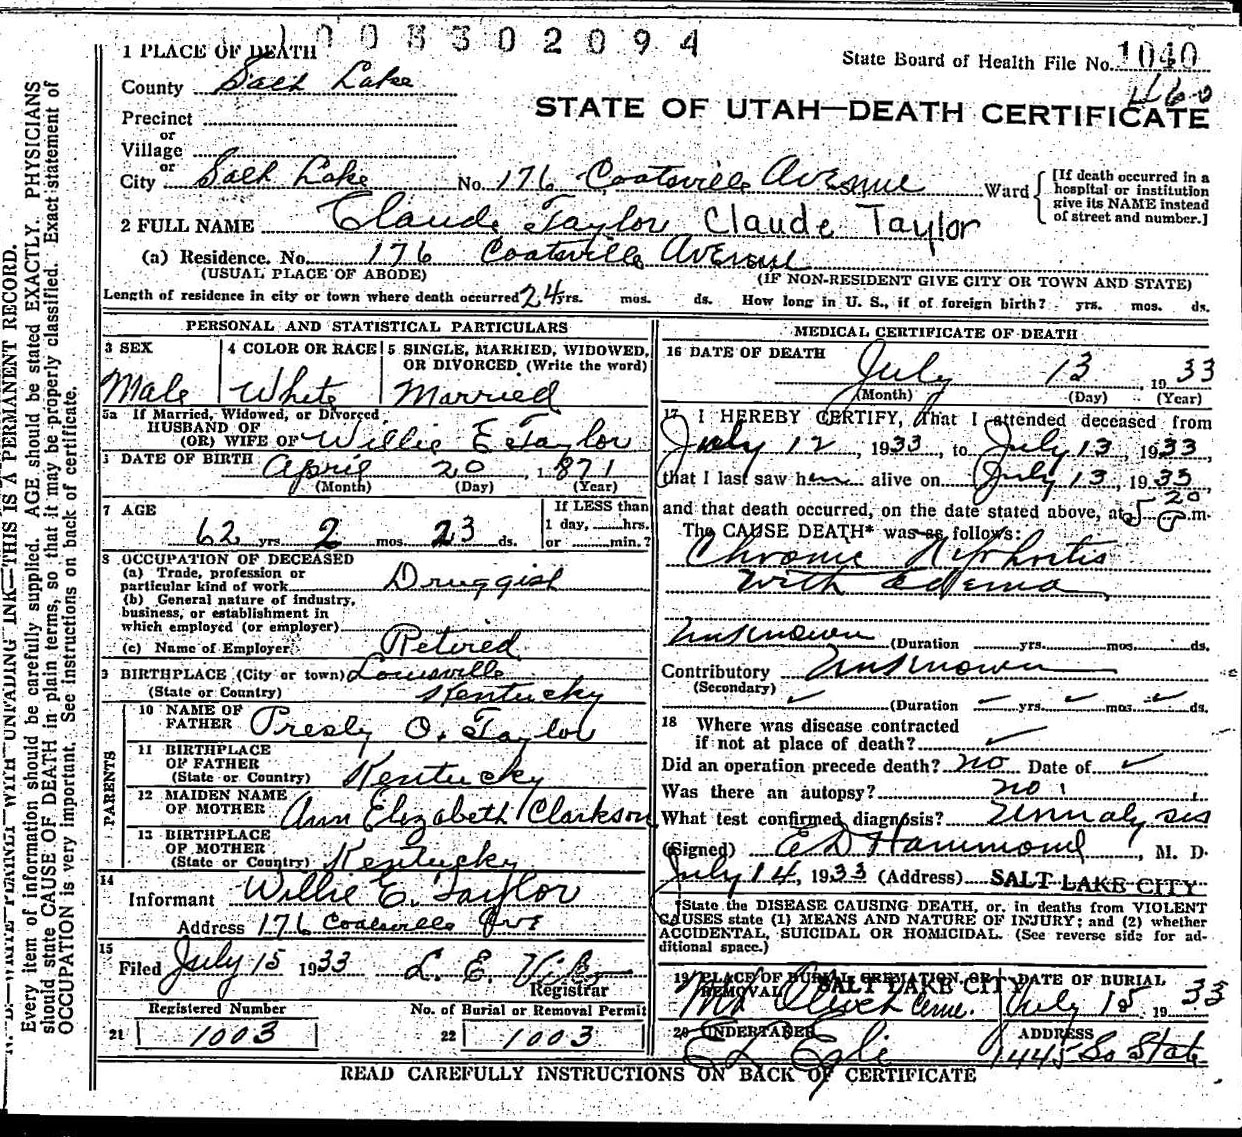 1003302094
State Board of Health File No. 1040
STATE OF UTAH—DEATH CERTIFICATE
1 PLACE OF DEATH
County Salt Lake
Precinct
or
Village
or
City Salt Lake No. 176 Coatsville Avenue Ward
[If death occurred in a
hospital or institution
give its NAME instead
of street and number.]
2 FULL NAME Claude Taylor Claude Taylor
(a) Residence. No. 176 Coatsville Avenue
(USUAL PLACE OF ABODE) (IF NON-RESIDENT GIVE CITY OR TOWN AND STATE)
Length of residence in city or town where death occurred 24 yrs. mos. ds. How long in U. S., if of foreign birth? yrs. mos. ds.
PERSONAL AND STATISTICAL PARTICULARS
3 SEX 4 COLOR OR RACE 5 SINGLE, MARRIED, WIDOWED,
OR DIVORCED (Write the word)
Male White Married
5a If Married, Widowed, or Divorced
HUSBAND OF
(OR) WIFE OF Willie E Taylor
DATE OF BIRTH April 20 1871
(Month) (Day) (Year)
7 AGE If LESS than
1 day, hrs.
62 yrs 2 mos. 23 ds. or min.?
8 OCCUPATION OF DECEASED
(a) Trade, profession or
particular kind of work Druggist
(b) General nature of industry,
business, or establishment in
which employed (or employer)
(c) Name of Employer Retired
9 BIRTHPLACE (City or town) Louisville
(State or Country) Kentucky
PARENTS
10 NAME OF
FATHER Presly O. Taylor
11 BIRTHPLACE
OF FATHER
(State or Country) Kentucky
12 MAIDEN NAME
OF MOTHER Ann Elizabeth Clarkson
13 BIRTHPLACE
OF MOTHER
(State or Country) Kentucky
14
Informant Willie E. Taylor
Address 176 Coatsville Ave
15
Filed July 15 1933 L. E.
Registrar
Registered Number No. of Burial or Removal Permit
21 1003 22 1003
MEDICAL CERTIFICATE OF DEATH
16 DATE OF DEATH July 13, 1933
(Month) (Day) (Year)
17 I HEREBY CERTIFY, That I attended deceased from
July 12, 1933, to July 13, 1933,
that I last saw him alive on July 13, 1933
and that death occurred, on the date stated above, at 5 20 P.m.
The CAUSE DEATH* was as follows:
Chronic Nephritis
with Edema
Unknown (Duration yrs. mos. ds.
Contributory Unknown
(Secondary)
(Duration yrs. mos. ds.
18 Where was disease contracted
if not at place of death?
Did an operation precede death? no Date of
Was there an autopsy? no
What test confirmed diagnosis? Urinalysis
(Signed) E D Hammond, M. D.
July 14, 1933 (Address) SALT LAKE CITY
*State the DISEASE CAUSING DEATH, or, in deaths from VIOLENT
CAUSES state (1) MEANS AND NATURE OF INJURY; and (2) whether
ACCIDENTAL, SUICIDAL OR HOMICIDAL. (See reverse side for ad-
ditional space.)
19 PLACE OF BURIAL, CREMATION OR DATE OF BURIAL
REMOVAL SALT LAKE CITY
Mt Olivet Cem. July 15 1933
20 UNDERTAKER ADDRESS
1445 So State
READ CAREFULLY INSTRUCTIONS ON BACK OF CERTIFICATE
N. B.—WRITE PLAINLY WITH UNFADING INK—THIS IS A PERMANENT RECORD.
Every item of information should be carefully supplied. AGE should be stated EXACTLY. PHYSICIANS
should state CAUSE OF DEATH in plain terms, so that it may be properly classified. Exact statement of
OCCUPATION is very important. See instructions on back of certificate.